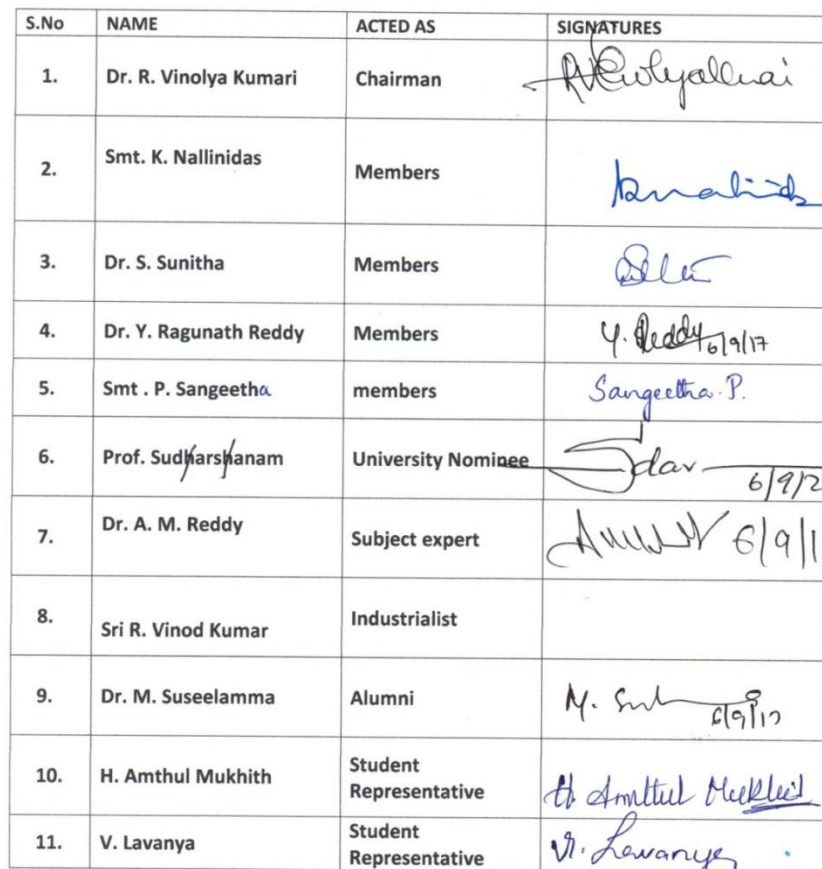 S.No NAME ACTED AS SIGNATURES
1. Dr. R. Vinolya Kumari Chairman
2. Smt. K. Nallinidas Members
3. Dr. S. Sunitha Members
4. Dr. Y. Ragunath Reddy Members Y. Reddy 6/9/17
5. Smt . P. Sangeetha members Sangeetha. P.
6. Prof. Sudharshanam University Nominee 6/9/2
7. Dr. A. M. Reddy Subject expert 6/9/1
8. Sri R. Vinod Kumar Industrialist
9. Dr. M. Suseelamma Alumni M. 6/9/17
10. H. Amthul Mukhith Student
Representative H. Amthul Mukhit
11. V. Lavanya Student
Representative V. Lavanya